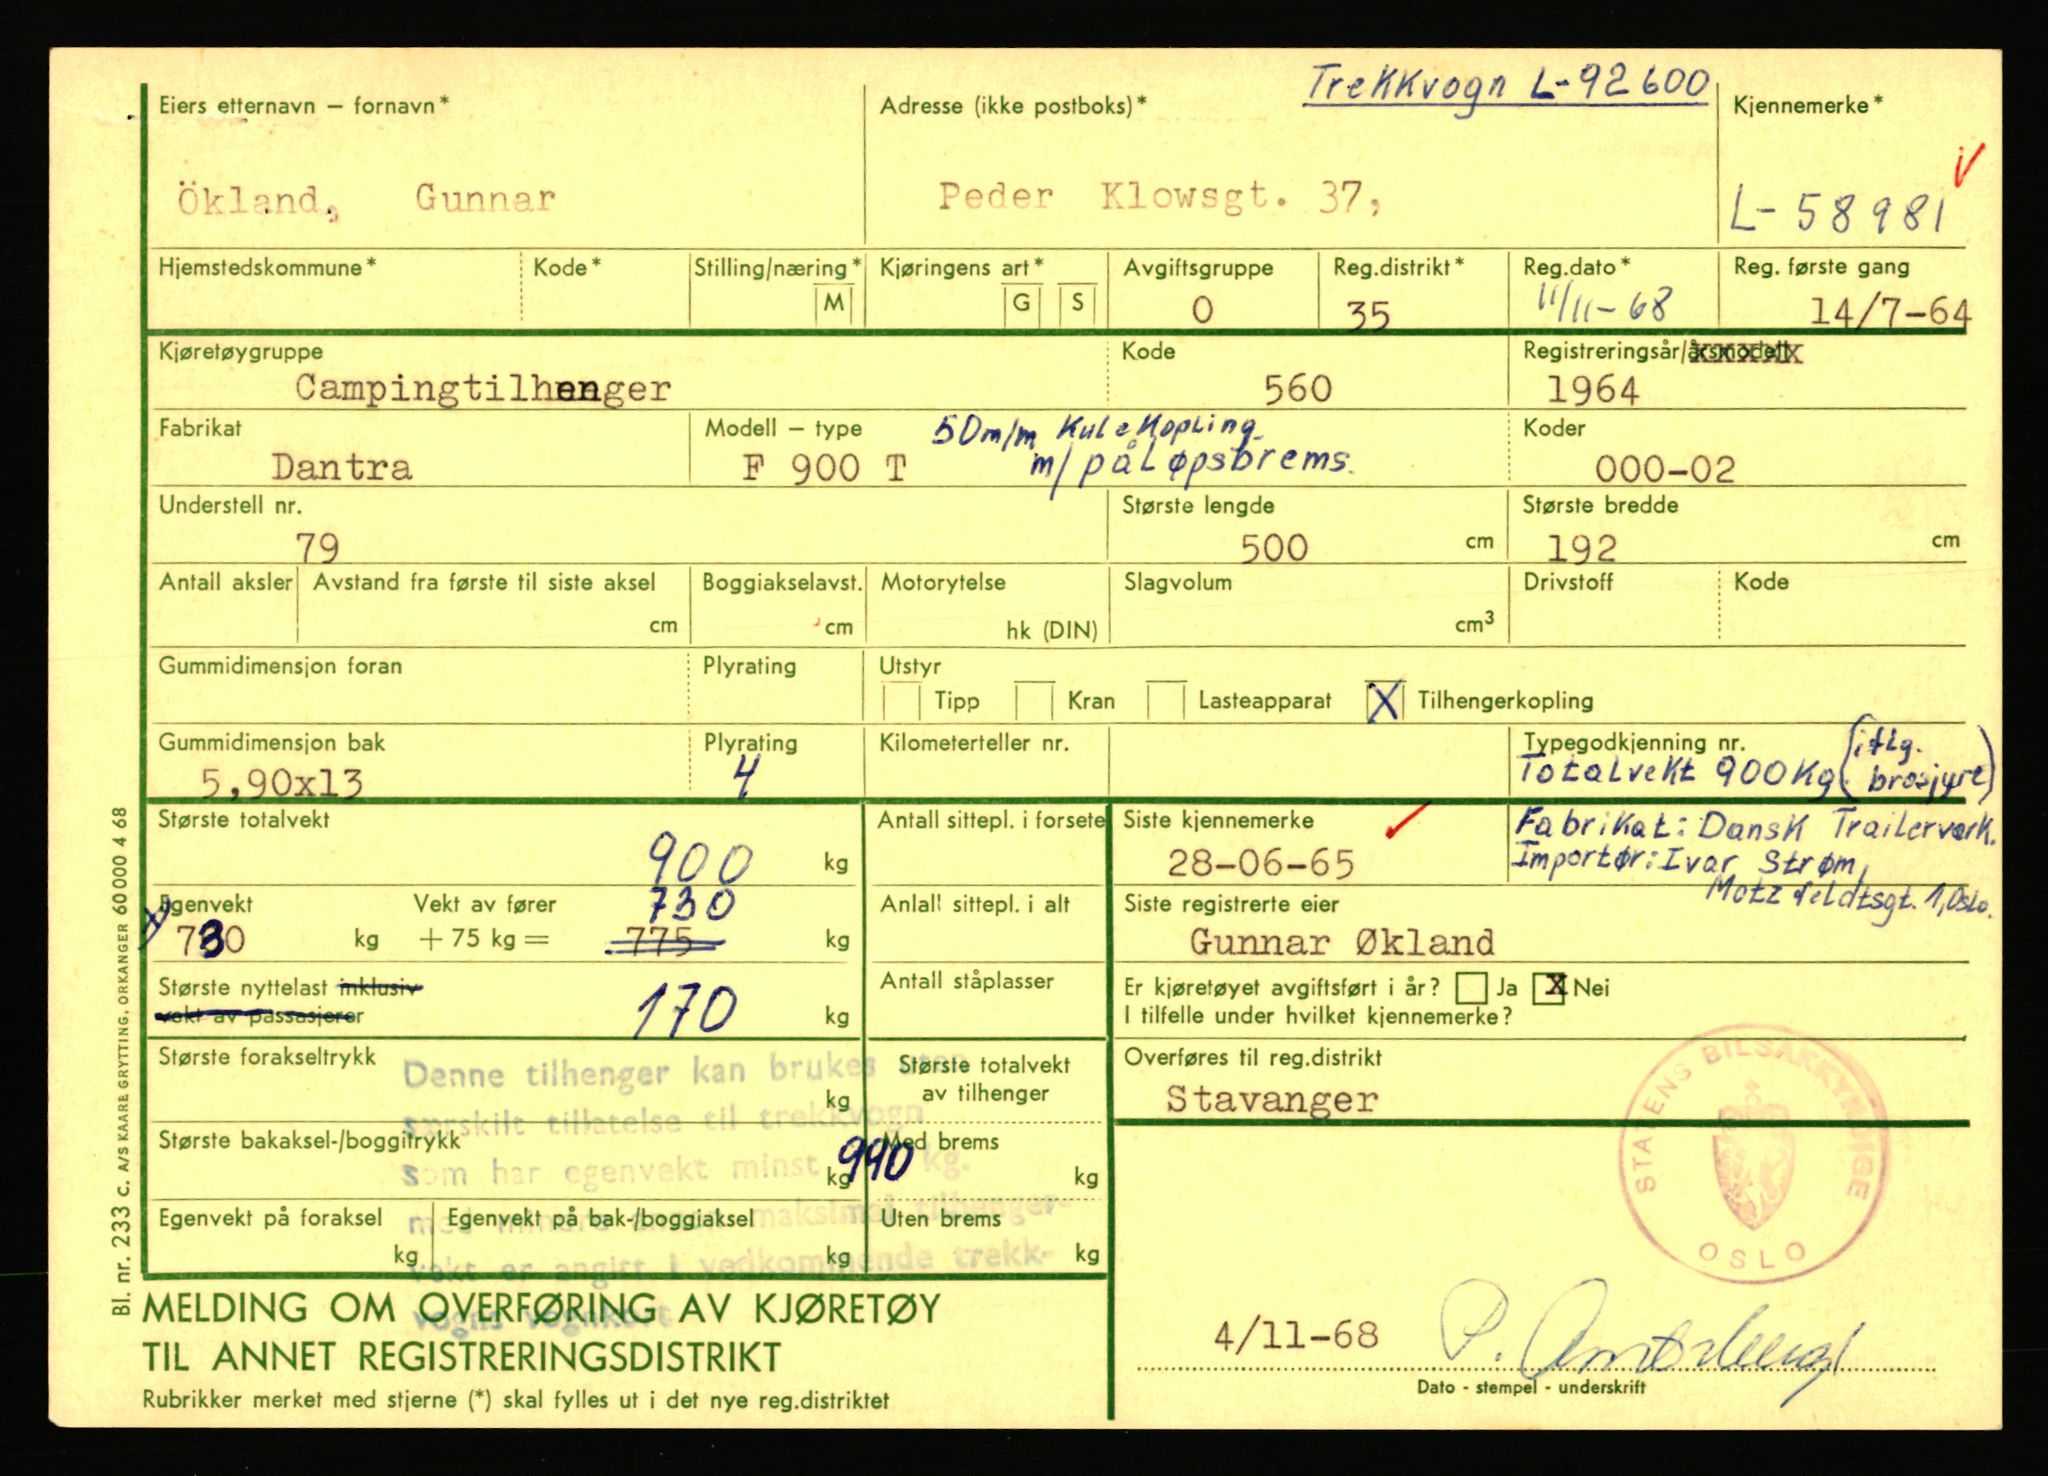 Trekkvogn L-92600
Eiers etternavn – fornavn*
Adresse (ikke postboks)*
Kjennemerke*
Ökland, Gunnar
Peder Klowsgt. 37,
L-58981
Hjemstedskommune* Kode* Stilling/næring* M
Kjøringens art* G S
Avgiftsgruppe 0
Reg.distrikt* 35
Reg.dato* 11/11-68
Reg. første gang 14/7-64
Kjøretøygruppe
Campingtilhenger
Kode
560
Registreringsår/årsmodell
1964
Fabrikat
Dantra
Modell – type
F 900 T
50m/m Kulekopling
m/påløpsbrems.
Koder
000-02
Understell nr.
79
Største lengde
500 cm
Største bredde
192 cm
Antall aksler
Avstand fra første til siste aksel
cm
Boggiakselavst.
cm
Motorytelse
hk (DIN)
Slagvolum
cm³
Drivstoff
Kode
Gummidimensjon foran
Plyrating
Utstyr
Tipp Kran Lasteapparat X Tilhengerkopling
Gummidimensjon bak
5,90x13
Plyrating
4
Kilometerteller nr.
Typegodkjenning nr.
Totalvekt 900Kg (iflg.
brosjyre)
Største totalvekt
900 kg
Antall sittepl. i forsete
Siste kjennemerke
28-06-65
Fabrikat: Dansk Trailerværk.
Importør: Ivar Strøm,
Motzfeldtsgt. 1, Oslo.
Egenvekt
730 kg
Vekt av fører
+ 75 kg =
730
775 kg
Anlall sittepl. i alt
Siste registrerte eier
Gunnar Økland
Største nyttelast inklusiv
vekt av passasjerer
170 kg
Antall ståplasser
Er kjøretøyet avgiftsført i år? Ja X Nei
I tilfelle under hvilket kjennemerke?
Største forakseltrykk
kg
Største totalvekt
av tilhenger
Overføres til reg.distrikt
Stavanger
Største bakaksel-/boggitrykk
kg
Med brems
kg
Egenvekt på foraksel
kg
Egenvekt på bak-/boggiaksel
kg
Uten brems
kg
Denne tilhenger kan brukes uten
særskilt tillatelse til trekkvogn
som har egenvekt minst 990 kg.
med mindre annen maksimal tilhenger-
vekt er angitt i vedkommende trekk-
vogns vognkort
STATENS BILSAKKYNDIGE
OSLO
MELDING OM OVERFØRING AV KJØRETØY
TIL ANNET REGISTRERINGSDISTRIKT
Rubrikker merket med stjerne (*) skal fylles ut i det nye reg.distriktet
4/11-68
Dato - stempel - underskrift
Bl. nr. 233 c. A/S KAARE GRYTTING, ORKANGER 60 000 4 68